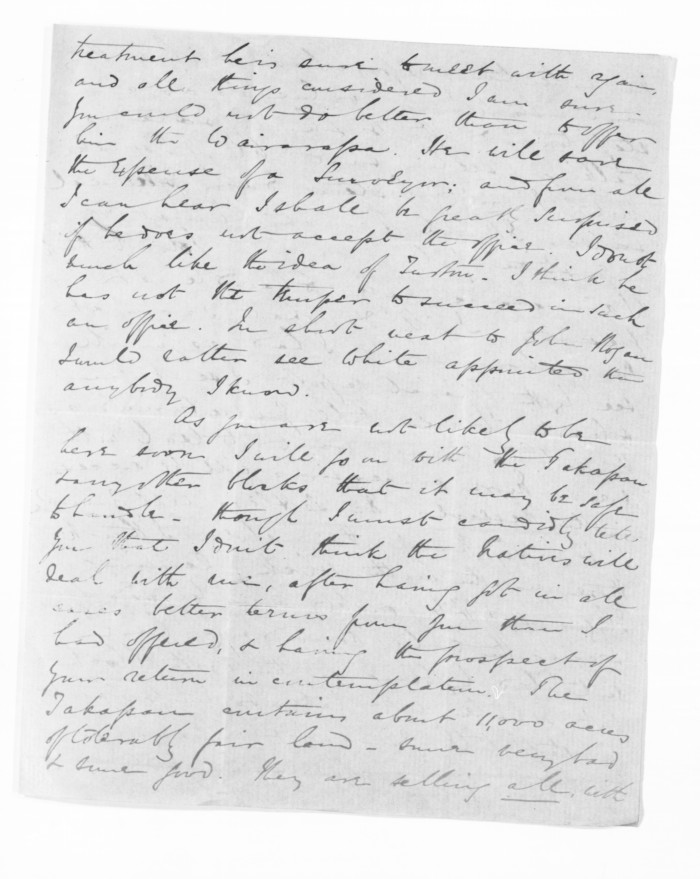 treatment he is sure to meet with again,
and all things considered I am sure
you could not do better than to offer
him the Wairarapa. He will save
the Expense of a Surveyor; and from all
I can hear I shall be greatly surprised
if he does not accept the office. I don't
much like the idea of Turton. I think he
has not the temper to succeed in such
an office. In short next to John Rogan
I would rather see White appointed than
anybody I know.
As you are not likely to be
here soon I will go on with the Takapau
& any other blocks that it may be safe
to handle - though I must candidly tell
you that I don't think the Natives will
deal with me, after having got in all
cases better terms from you than I
had offered, & having the prospect of
your return in contemplation. The
Takapau contains about 11,000 acres
of tolerably fair land - some very bad
& some good. They are selling all, with